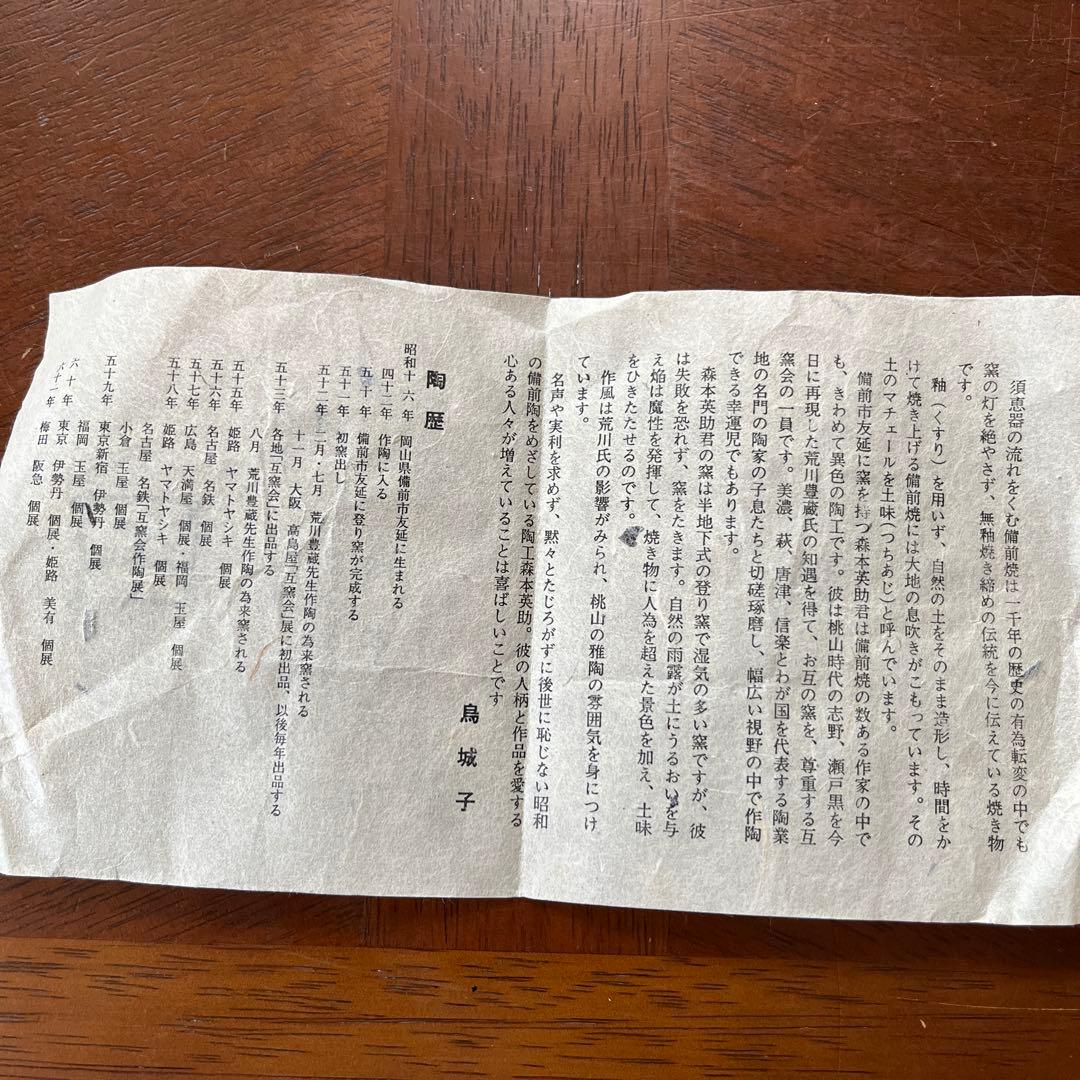 須恵器の流れをくむ備前焼は一千年の歴史の有為転変の中でも
窯の灯を絶やさず、無釉焼き締めの伝統を今に伝えている焼き物
です。
釉（くすり）を用いず、自然の土をそのまま造形し、時間をか
けて焼き上げる備前焼には大地の息吹きがこもっています。その
土のマチェールを土味（つちあじ）と呼んでいます。
備前市友延に窯を持つ森本英助君は備前焼の数ある作家の中で
も、きわめて異色の陶工です。彼は桃山時代の志野、瀬戸黒を今
日に再現した荒川豊蔵氏の知遇を得て、お互の窯を、尊重する互
窯会の一員です。美濃、萩、唐津、信楽とわが国を代表する陶業
地の名門の陶家の子息たちと切磋琢磨し、幅広い視野の中で作陶
できる幸運児でもあります。
森本英助君の窯は半地下式の登り窯で湿気の多い窯ですが、彼
は失敗を恐れず、窯をたきます。自然の雨露が土にうるおいを与
え焔は魔性を発揮して、焼き物に人為を超えた景色を加え、土味
をひきたたせるのです。
作風は荒川氏の影響がみられ、桃山の雅陶の雰囲気を身につけ
ています。
名声や実利を求めず、黙々とたじろがずに後世に恥じない昭和
の備前陶をめざしている陶工森本英助。彼の人柄と作品を愛する
心ある人々が増えていることは喜ばしいことです
烏城子
陶歴
昭和十六年 岡山県備前市友延に生まれる
四十二年 作陶に入る
五十年 備前市友延に登り窯が完成する
五十一年 初窯出し
五十二年 二月・七月 荒川豊蔵先生作陶の為来窯される
十一月 大阪 高島屋「互窯会」展に初出品、以後毎年出品する
五十三年 各地「互窯会」に出品する
八月 荒川豊蔵先生作陶の為来窯される
五十五年 姫路 ヤマトヤシキ 個展
五十六年 名古屋 名鉄 個展
五十七年 広島 天満屋 個展・福岡 玉屋 個展
五十八年 姫路 ヤマトヤシキ 個展
名古屋 名鉄「互窯会作陶展」
小倉 玉屋 個展
五十九年 東京新宿 伊勢丹 個展
福岡 玉屋 個展
六十年 東京 伊勢丹 個展・姫路 美有 個展
六十一年 梅田 阪急 個展